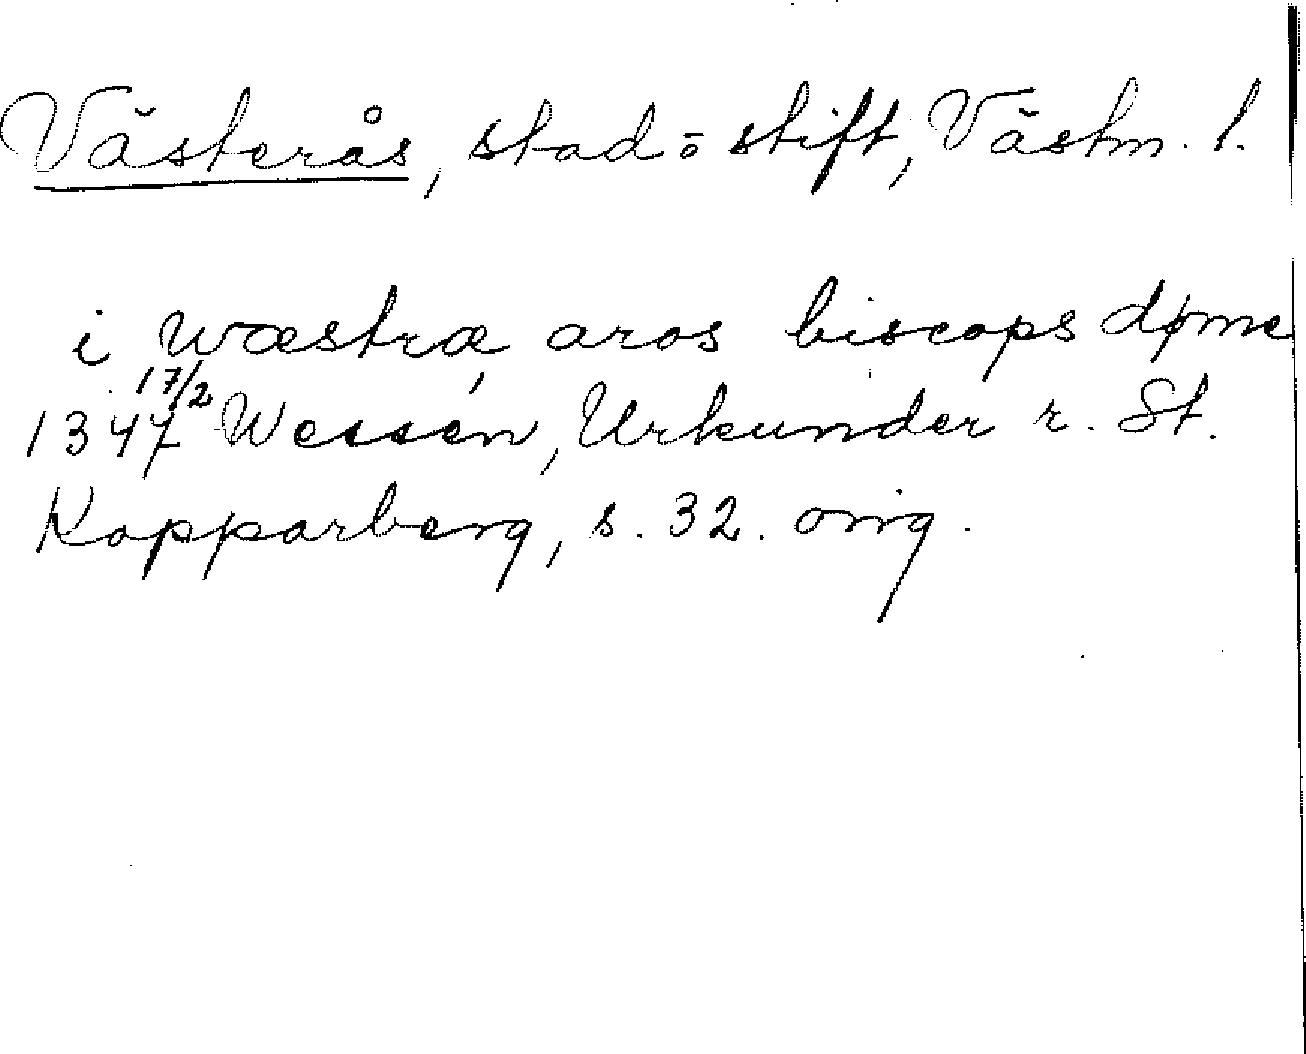 Västerås, stad o stift, Västm. l.
i wæstræ aros biscops døme
17/2
1347 Wessén, Urkunder r. St.
Kopparberg, s. 32. orig.